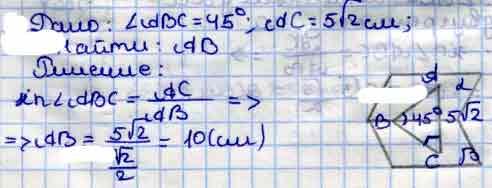 Дано: ∠ABC = 45°; AC = 5√2 см;
Найти: AB
Решение:
sin∠ABC = AC/AB =>
=> AB = 5√2/(√2/2) = 10(см)
A
B 45° 5√2
C